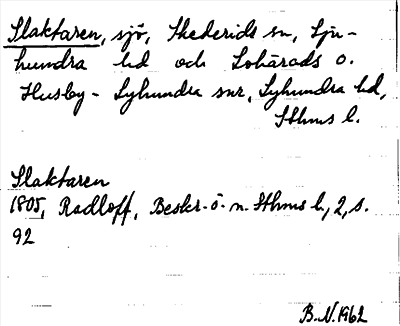 Slaktaren, sjö, Skederids sn, Sju-
hundra hd och Lohärads o.
Husby-Lyhundra snr, Lyhundra hd,
Sthms l.
Slaktaren
1805, Radloff, Beskr. ö. n. Sthms l., 2, s.
92
B.N. 1962